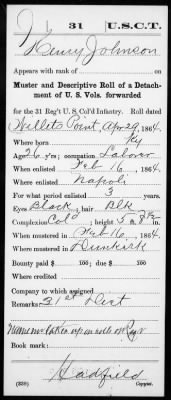 31 U.S.C.T.
Henry Johnson
Appears with rank of
Muster and Descriptive Roll of a Detach-
ment of U. S. Vols. forwarded
for the 31 Reg't U. S. Col'd Infantry. Roll dated
Willets Point, Apr 29, 1864.
Where born Ky
Age 26 y'rs; occupation Laborer
When enlisted Feb 16, 1864.
Where enlisted Napoli
For what period enlisted 3 years.
Eyes Black; hair Blk
Complexion Col'd; height 5 ft. 8½ in.
When mustered in Feb 16, 1864.
Where mustered in Dunkirk
Bounty paid $ 100; due $ 100
Where credited
Company to which assigned
Remarks: 31st Dist
Name not taken up on rolls of Reg't
Book mark:
Hadfield
(339) Copyer.